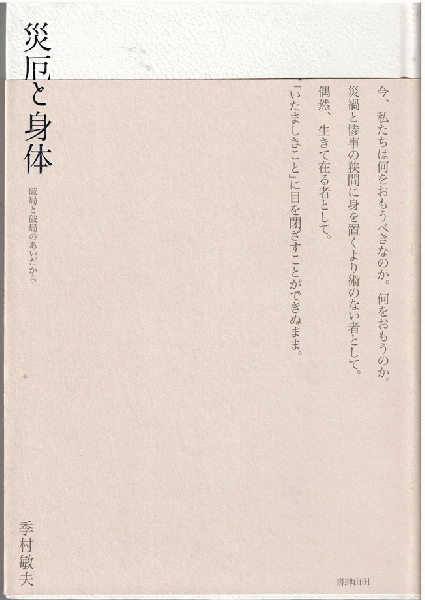 災厄と身体
破局と破局のあいだから
今、私たちは何をおもうべきなのか。何をおもうのか。
災禍と惨事の狭間に身を置くより術のない者として。
偶然、生きて在る者として。
「いたましきこと」に目を閉ざすことができぬまま。
季村敏夫
書肆山田